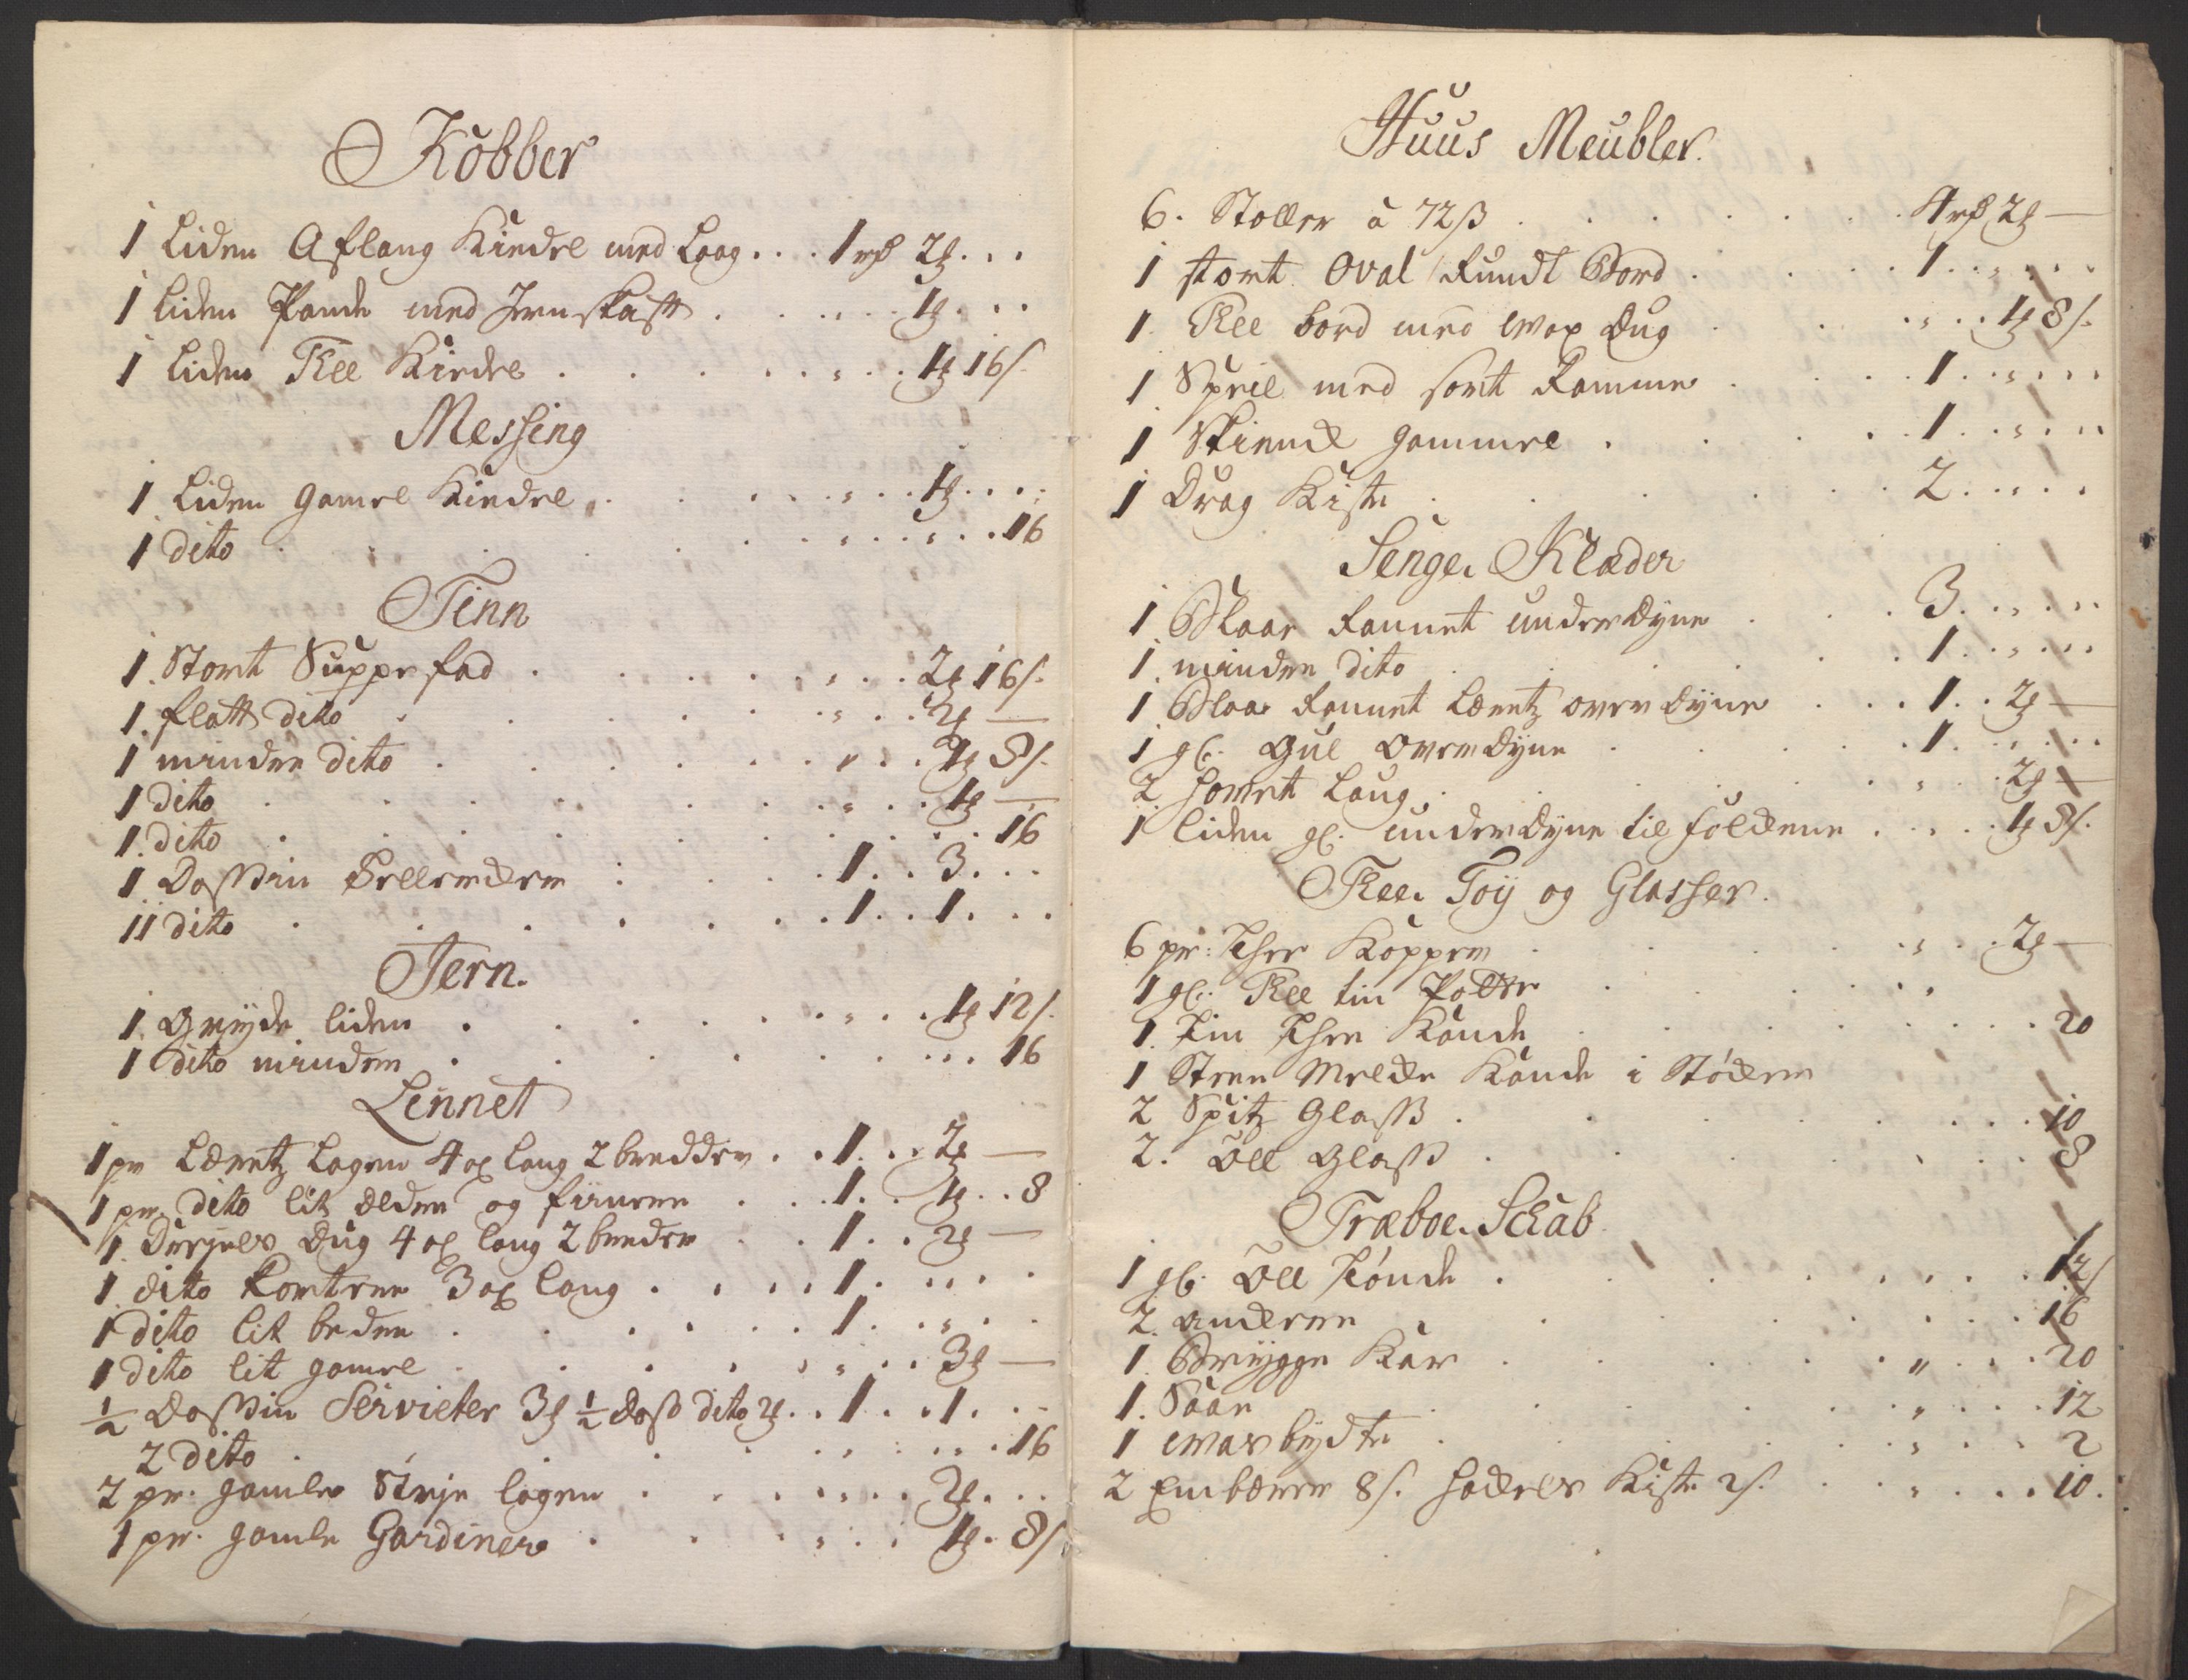 Kobber
1 liden Aflang Kiedel med Laag . . . 1 rd 2 ℳ . . .
1 liden Pande med Jernskafft . . . . . 1 ℳ . . .
1 liden Thee Kiedel . . . . . . 1 ℳ 16 s.
Messing
1 liden gamel Kiedel . . . . . . 1 ℳ . . .
1 dito . . . . . . 16
Tinn
1. Stort Suppe fad . . . . . . 2 ℳ 16 s.
1. flatt dito . . . . . . 2 ℳ —
1 mindre dito . . . . . . 1 ℳ 8 s.
1 dito . . . . . . 1 ℳ —
1. dito . . . . . . 16
1 Dossin Tellercker . . . . 1 . . 3 . . .
11 dito . . . . . . 1 . . 1 . . .
Jern.
1. Gryde liden . . . . . . 1 ℳ 12 s.
1 dito mindre . . . . . . 16
Linnet
1 pr Lærretz Lagen 4 al lang 2 bredder . . 1 . . 2 ℳ —
1 pr. dito lit ældre og finere . . 1 . . 1 ℳ . . 8
1. Dreyels Dug 4 al lang 2 breder . . 1 . . 2 ℳ —
1. dito kortere 3 al lang . . . . 1 . . . .
1 dito lit bedre . . . . . . 1 . . . .
1 dito lit gamel . . . . . . 3 ℳ —
½ Dossin Servieter 3 ℳ ½ Doss dito 2 ℳ . . 1 . . 1 . . .
2 dito . . . . . . 16
2 pr. gamle Strie lagen . . . . . . 2 ℳ . . .
1 pr. gamle Gardiner . . . . . 1 ℳ . 8 s.
Huus Meubler.
6. Stoller à 72 ß . . . . . . 4 rd 2 ℳ —
1 stort Oval Rundt Bord . . . . 1 . . . . .
1. Thee bord med Wox Dug . . . . 1 ℳ 8 s.
1 Speil med sort Ramme . . . . 1 . . . . .
1 Skienck gammel . . . . 1 . . . . .
1 Drag Kiste . . . . . . 2 . . . . .
Senge Klæder
1 Blaae Rannet underdyne . . . 3 . . . . .
1. mindre dito . . . . . . 1 . . . . .
1 Blaa Rannet Lærretz over dyne . . . 1 . . 2 ℳ —
1 gl. Gul Overdyne . . . . . . 1 . . . . .
2 . . . . . . 2 ℳ —
1 liden gl. underdyne til folckene . . . . 1 ℳ 8 s.
Thee Toy og Glasser.
6 pr: Thee Kopper . . . . . . 2 ℳ —
1 gl. Thee tin Potte . . . . . .
1. Tin Thee Kande . . . . . . 20
1 Steen Melcke Kande i Stöcker
2 Spitz Glass . . . . . . 10
2. Öll Glass . . . . . . 8
Træboe Skab
1 gl. Öll Tönde . . . . . . 12 s
2. anckere . . . . . . 16
1. Brygge Kar . . . . . . 20
1. Saae . . . . . . 12
1 bydte . . . . . . 2
2 Embære 8 s. Kiste 2 s. . . . . 10.